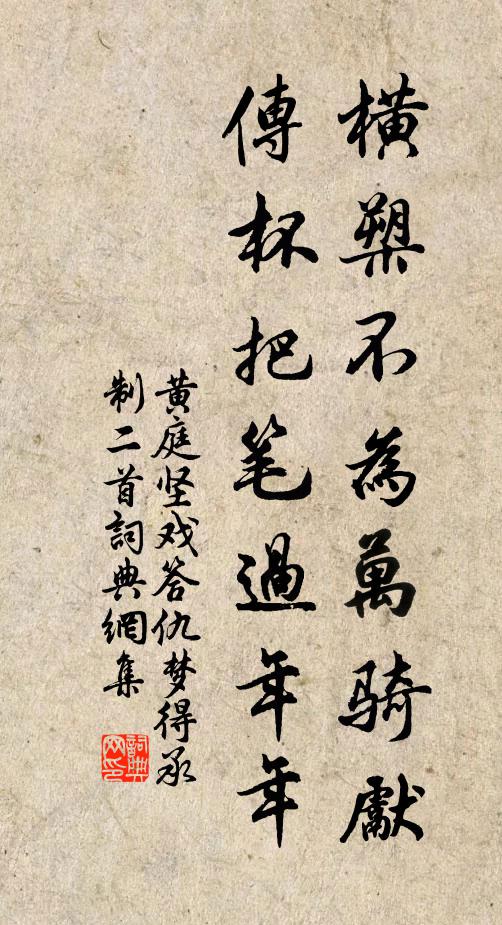 橫槊不為萬騎獻
傳杯把笔過年年
黄庭坚戏答仇梦得承
制二首詞典網集
詞典
网印